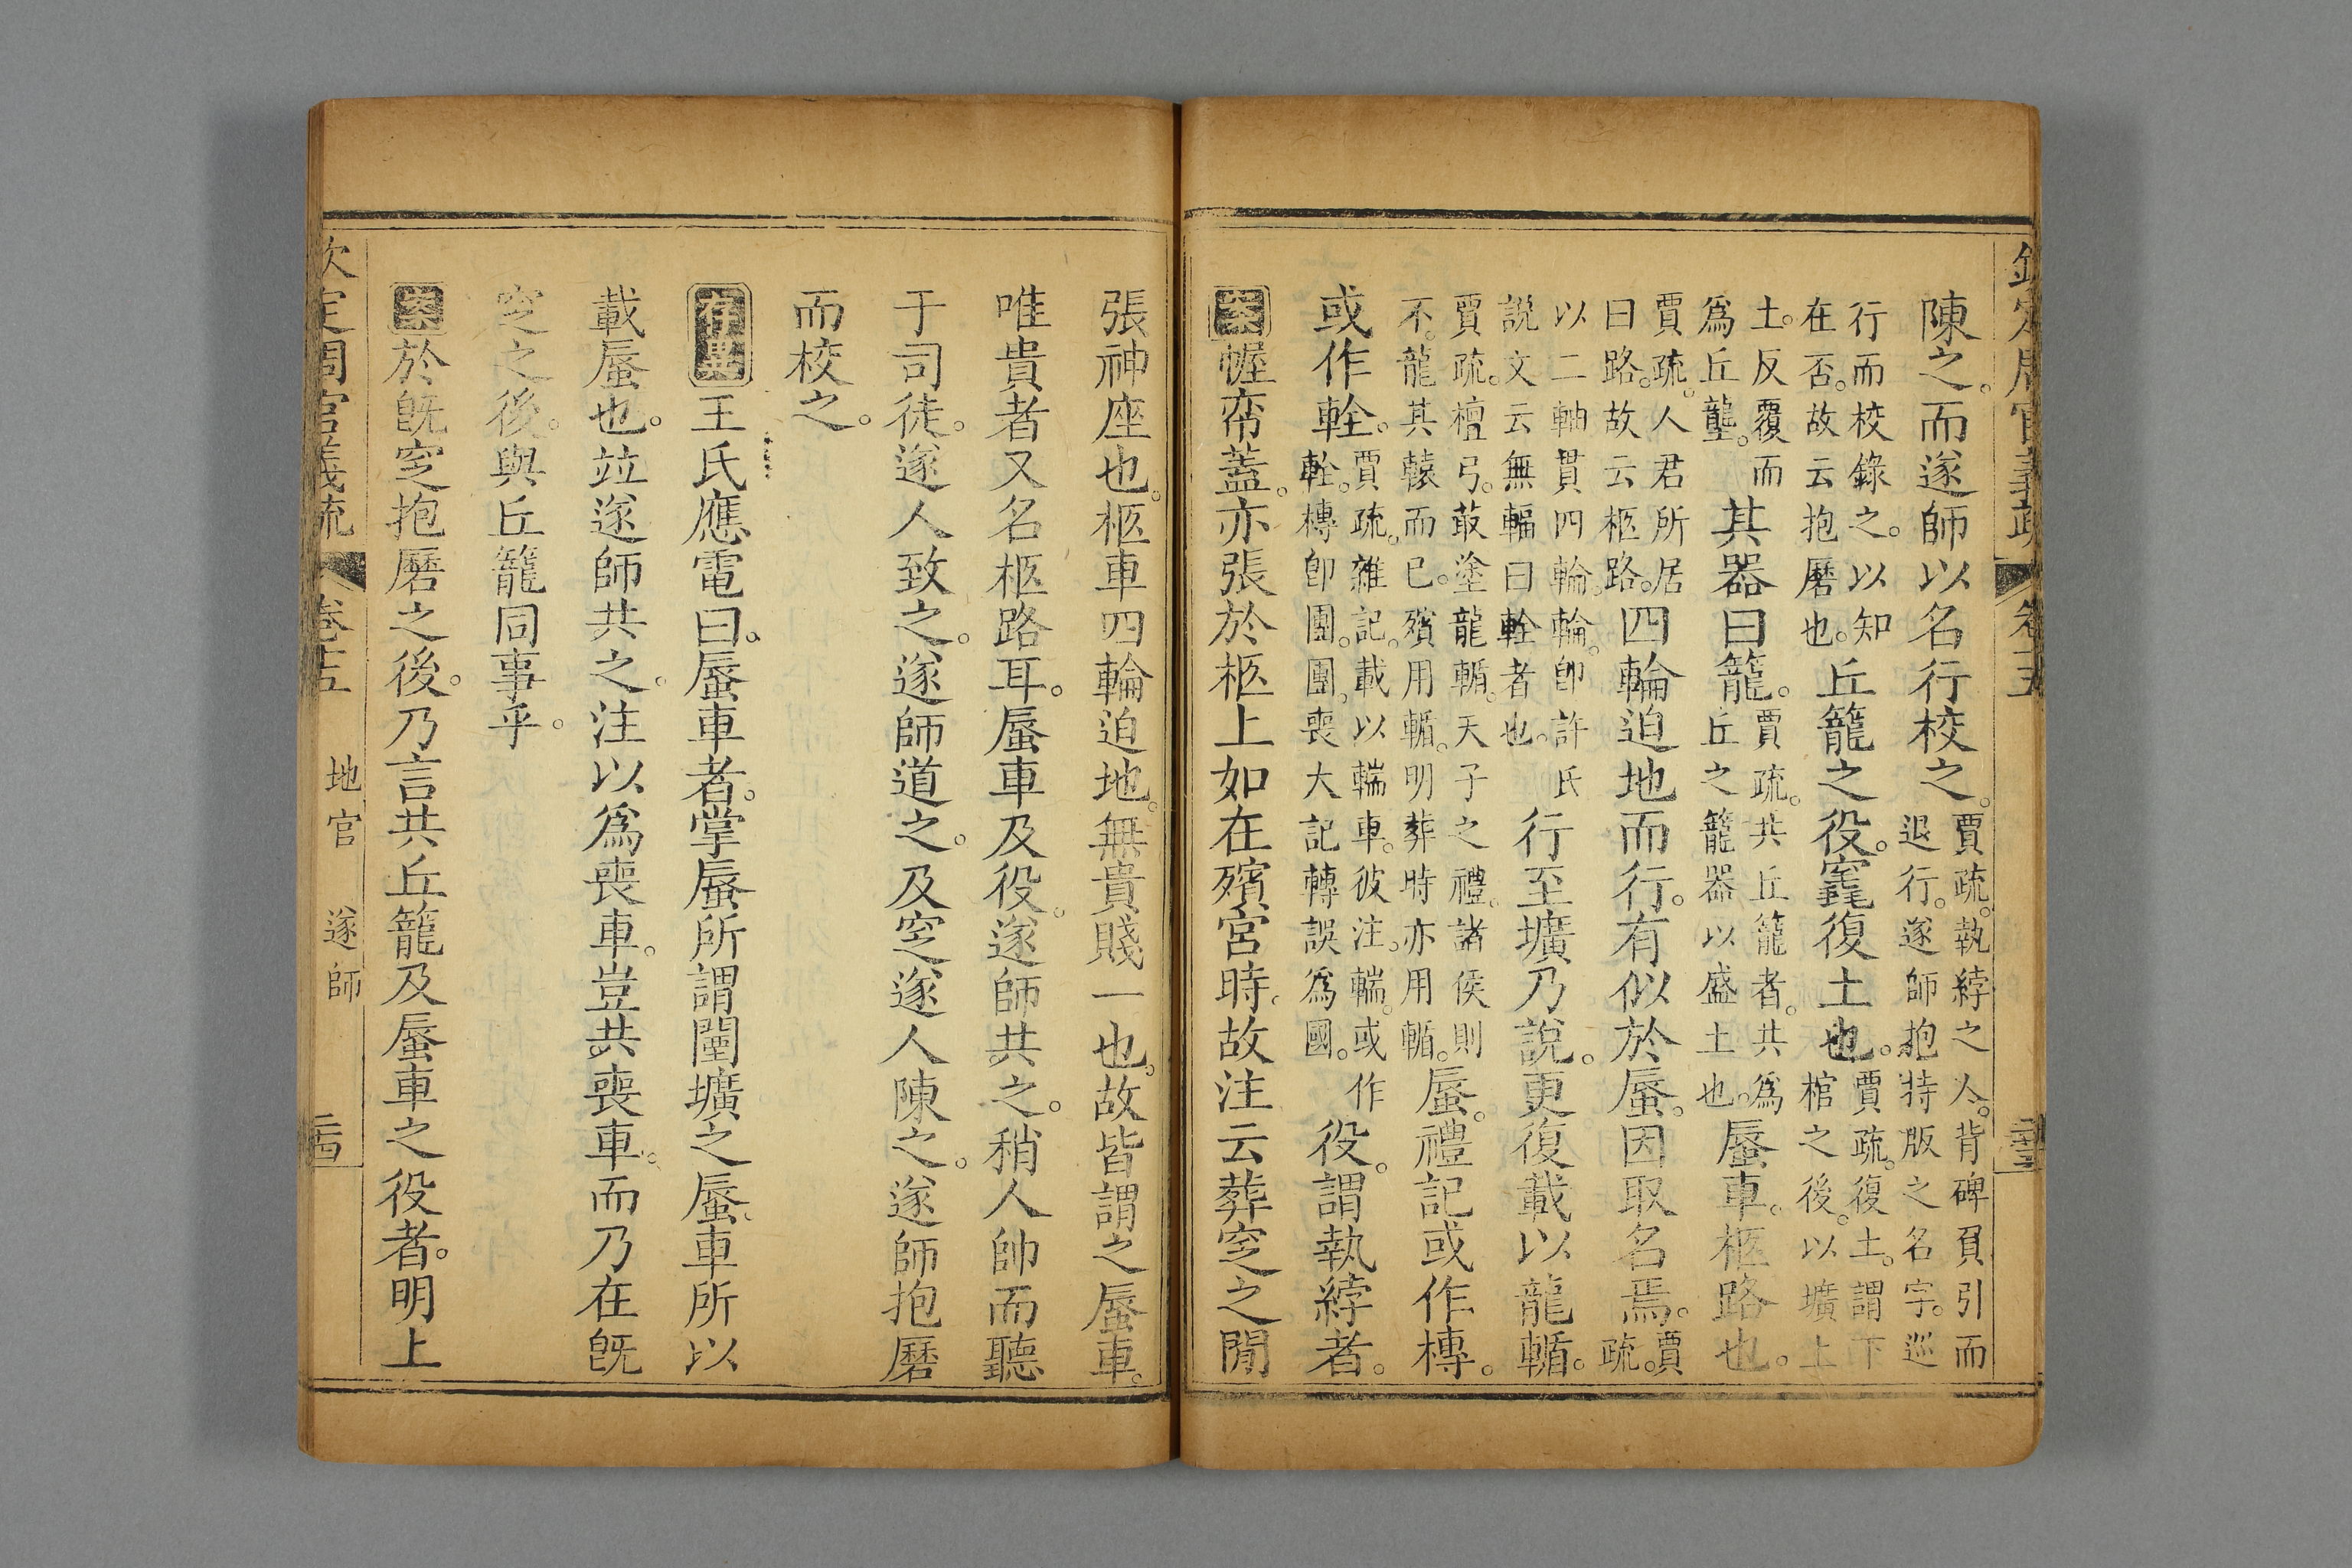 陳之。而遂師以名行校之。賈疏。執紼之人。背碑負引而
退行。遂師抱持版之名字。巡
行而校錄之。以知
在否。故云抱磿也。丘籠之役。窆復土也。賈疏。復土。謂下
棺之後。以壙上
土。反覆而
爲丘壟。其器曰籠。賈疏。共丘籠者。共爲
丘之籠器以盛土也。蜃車。柩路也。
賈疏。人君所居
曰路。故云柩路。四輪迫地而行。有似於蜃。因取名焉。賈
疏。
以二軸貫四輪。輪即許氏
說文云無輻曰輇者也。行至壙乃說。更復載以龍輴。
賈疏。檀弓。菆塗龍輴。天子之禮。諸侯則
不。龍其轅而已。殯用輴。明葬時亦用輴。蜃。禮記或作槫。
或作輇。賈疏。雜記。載以輲車。彼注。輲。或作
輇。槫即團。團。喪大記轉誤爲國。役。謂執紼者。
案幄帟蓋。亦張於柩上如在殯宮時。故注云葬窆之閒
張神座也。柩車四輪迫地。無貴賤一也。故皆謂之蜃車。
唯貴者又名柩路耳。蜃車及役。遂師共之。稍人帥而聽
于司徒。遂人致之。遂師道之。及窆遂人陳之。遂師抱磿
而校之。
存異王氏應電曰。蜃車者。掌蜃所謂闉壙之蜃。車所以
載蜃也。竝遂師共之。注以爲喪車。豈共喪車。而乃在旣
窆之後。與丘籠同事乎。
案於旣窆抱磿之後。乃言共丘籠及蜃車之役者。明上
欽定周官義疏 卷十五 地官 遂師